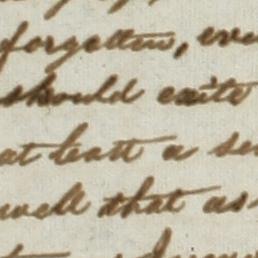 forgotten, eve
should exite
at least a se
well that as